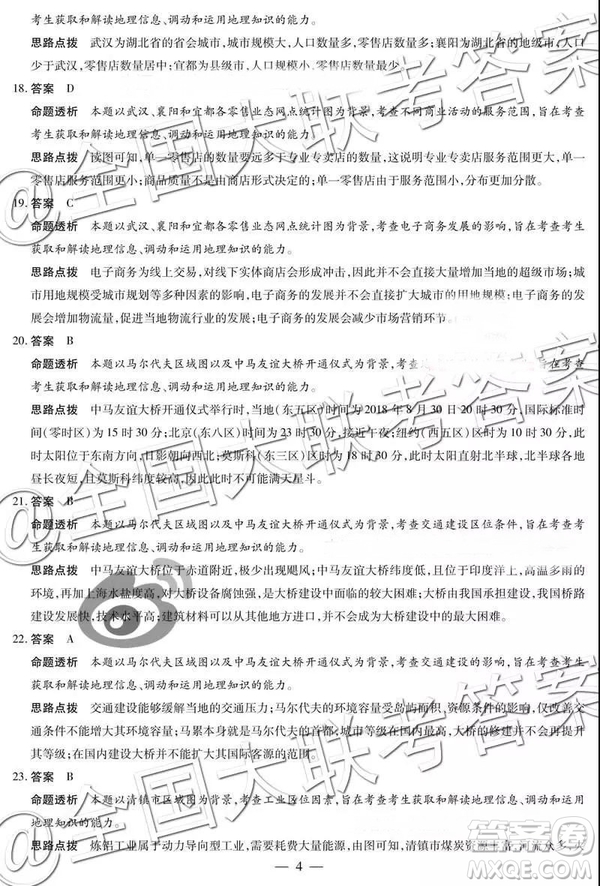 考生获取和解读地理信息、调动和运用地理知识的能力。
思路点拨 武汉为湖北省的省会城市,城市规模大,人口数量多,零售店数量多;襄阳为湖北省的地级市,人口
少于武汉,零售店数量居中;宜都为县级市,人口规模小,零售店数量最少。
18. 答案 D
命题透析 本题以武汉、襄阳和宜都各零售业态网点统计图为背景,考查不同商业活动的服务范围,旨在考查
考生获取和解读地理信息、调动和运用地理知识的能力。
思路点拨 读图可知,单一零售店的数量要远多于专业专卖店的数量,这说明专业专卖店服务范围更大,单一
零售店服务范围更小;而不是由商店形式决定的;单一零售店由于服务范围小,分布更加分散。
19. 答案 C
命题透析 本题以武汉、襄阳和宜都各零售业态网点统计图为背景,考查电子商务发展的影响,旨在考查考生
获取和解读地理信息、调动和运用地理知识的能力。
思路点拨 电子商务为线上交易,对线下实体商店会形成冲击,因此并不会直接大量增加当地的超级市场;城
市用地规模受城市规模等多种因素的影响,电子商务的发展并不会直接扩大城市的用地规模;电子商务的发
展会增加物流量,促进当地快速物流行业的发展;电子商务的发展会减少市场营销环节。
20. 答案 B
命题透析 本题以马尔代夫区域图以及中马友谊大桥开通仪式为背景,考查地球运动的地理意义,旨在考查
考生获取和解读地理信息、调动和运用地理知识的能力。
思路点拨 中马友谊大桥开通仪式举行时,当地(东五区)时间为 2018 年 8 月 30 日 20 时 30 分,国际标准时
间(零时区)为 15 时 30 分;北京(东八区)时间为 23 时 30 分,接近午夜;纽约(西五区)时间为 10 时 30 分,此
时太阳位于东南方向,日影朝向西北;莫斯科(东三区)时间为 18 时 30 分,此时太阳直射北半球,北半球各地
昼长夜短,且莫斯科纬度较高,因此此时不可能满天星斗。
21. 答案 B
命题透析 本题以马尔代夫区域图以及中马友谊大桥开通仪式为背景,考查交通建设区位条件,旨在考查考
生获取和解读地理信息、调动和运用地理知识的能力。
思路点拨 中马友谊大桥位于赤道附近,极少出现飓风;中马友谊大桥的建设条件,由于位于印度洋上,高温多雨
的环境,再加上海水盐度高,对大桥设备腐蚀强,是大桥建设中面临的较大困难;大桥由我国承建,我国桥路
建设发展快,技术水平高;建筑材料可以从其他地方进口,并不会成为大桥建设中的最大困难。
22. 答案 A
命题透析 本题以马尔代夫区域图以及中马友谊大桥开通仪式为背景,考查交通建设的影响,旨在考查考生
获取和解读地理信息、调动和运用地理知识的能力。
思路点拨 交通建设能够缓解当地的交通压力;马尔代夫的环境容量受岛屿面积、资源条件的影响,建设大桥
交通条件不能增大其环境容量;马累本身就是马尔代夫的首都,城市等级在国内最高,建设大桥并不会再提升
其等级;在国内建设大桥并不能扩大其国际客源的范围。
23. 答案 B
命题透析 本题以清镇市区域图为背景,考查工业区位因素,旨在考查考生获取和解读地理信息、调动和运用
地理知识的能力。
思路点拨 炼铝工业属于动力导向型工业,需要耗费大量能量,由图可知,清镇市煤炭资源丰富、河流众多,火
— 4 —
@全国大联考答案
@全国大联考答案
@全国大联考答案
答案圈
MXQE.COM